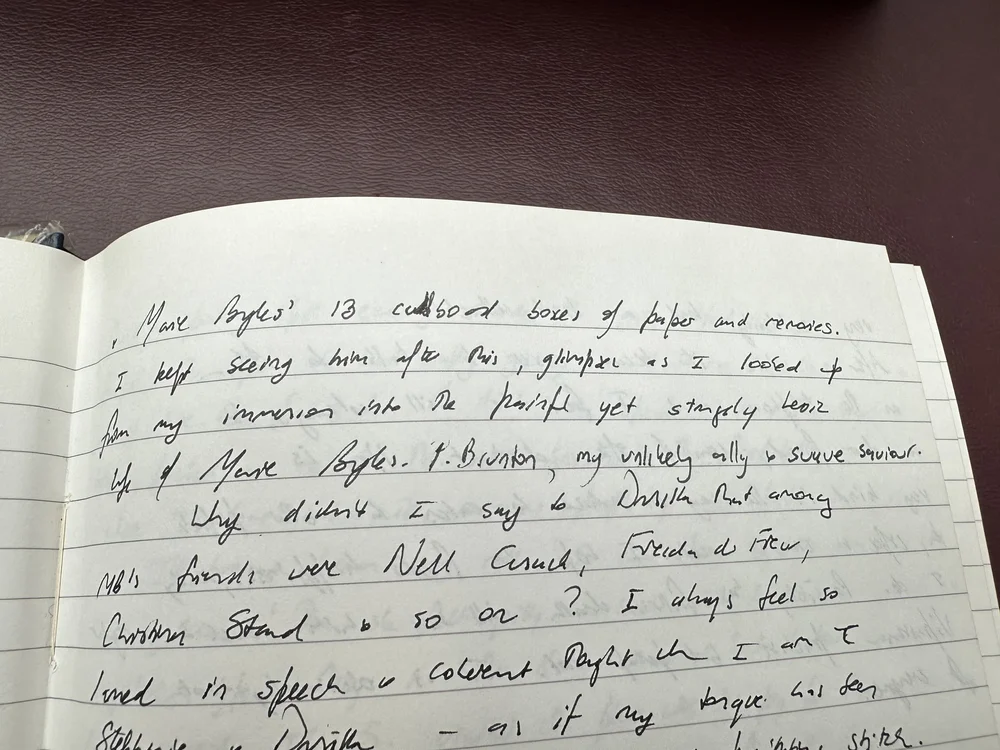 Marie Byles' 13 cardboard boxes of paper and memories.
I kept seeing him after this, glimpses as I looked up
from my immersion into the painful yet strangely heroic
life of Marie Byles. P. Brunton, my unlikely ally & suave saviour.
Why didn't I say to Drusilla that among
MB's friends were Nell Cusack, Frieda du Faur,
Christina Stead & so on? I always feel so
in speech & coherent thought when I am
& Drusilla – as if my tongue has been
stitch.